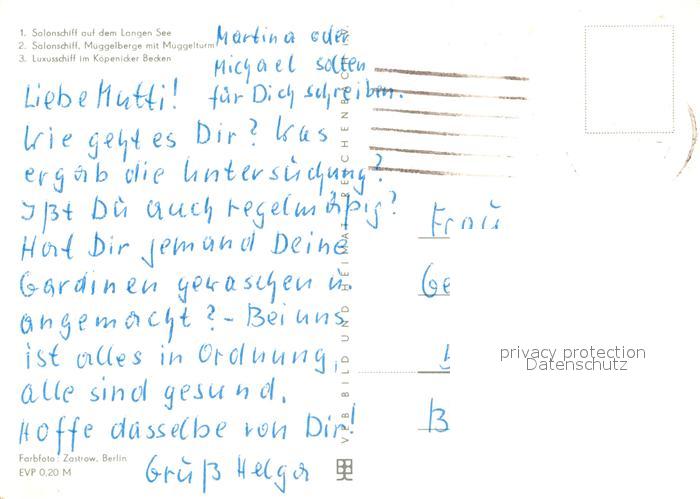 1. Salonschiff auf dem Langen See
2. Salonschiff, Müggelberge mit Müggelturm
3. Luxusschiff im Köpenicker Becken
Martina oder
Michael sollen
für Dich schreiben.
Liebe Mutti!
Wie geht es Dir? Was
ergab die Untersuchung?
Ißt Du auch regelmäßig?
Hat Dir jemand Deine
Gardinen gewaschen u.
angemacht? - Bei uns
ist alles in Ordnung,
alle sind gesund.
Hoffe dasselbe von Dir!
Gruß Helga
Farbfoto: Zastrow, Berlin
EVP 0,20 M
VEB BILD UND HEIMAT REICHENBACH
Frau
Ge
B
privacy protection
Datenschutz